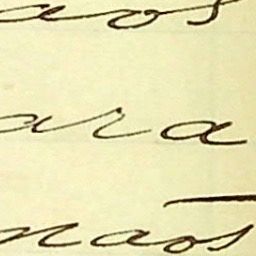 aos
ara
nãos